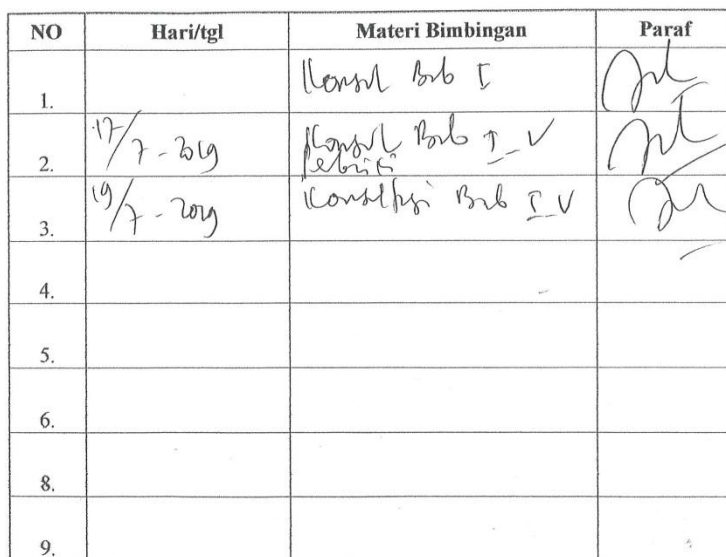 NO Hari/tgl Materi Bimbingan Paraf
1. Konsul Bab I
2. 17/7-2019 Konsul Bab I-V
3. 19/7-2019 Bab I-V
4.
5.
6.
8.
9.